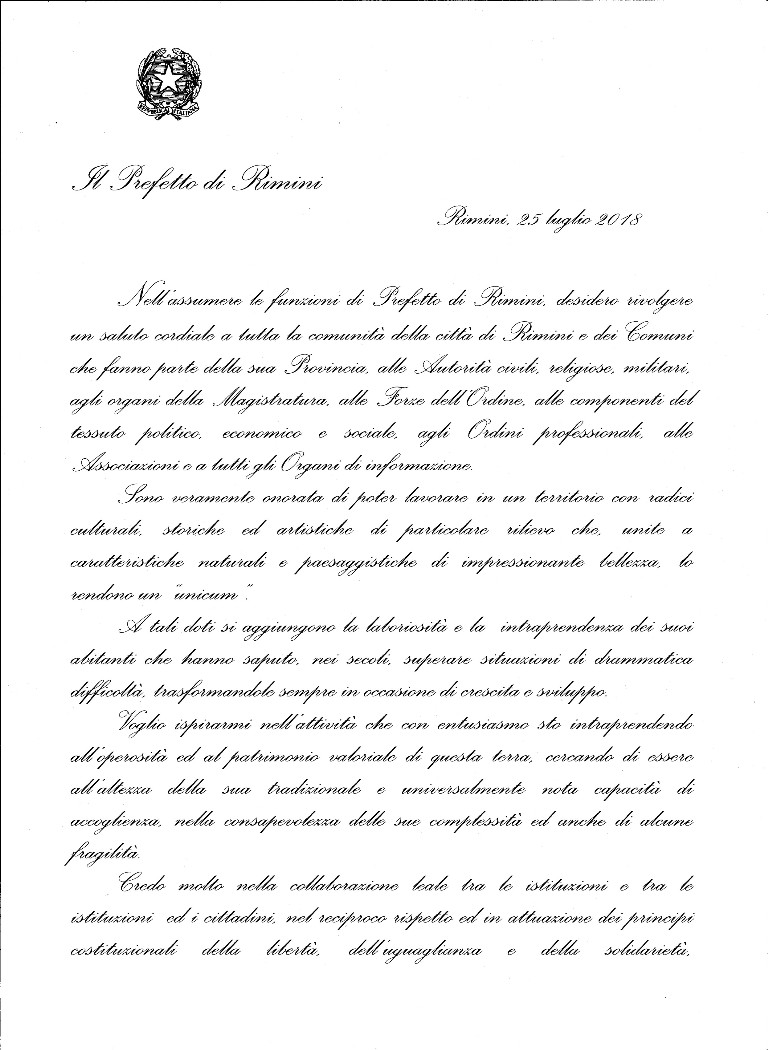 REPVBBLICA ITALIANA
Il Prefetto di Rimini
Rimini, 25 luglio 2018
Nell'assumere le funzioni di Prefetto di Rimini, desidero rivolgere
un saluto cordiale a tutta la comunità della città di Rimini e dei Comuni
che fanno parte della sua Provincia, alle Autorità civili, religiose, militari,
agli organi della Magistratura, alle Forze dell'Ordine, alle componenti del
tessuto politico, economico e sociale, agli Ordini professionali, alle
Associazioni e a tutti gli Organi di informazione.
Sono veramente onorata di poter lavorare in un territorio con radici
culturali, storiche ed artistiche di particolare rilievo che, unite a
caratteristiche naturali e paesaggistiche di impressionante bellezza, lo
rendono un "unicum".
A tali doti si aggiungono la laboriosità e la intraprendenza dei suoi
abitanti che hanno saputo, nei secoli, superare situazioni di drammatica
difficoltà, trasformandole sempre in occasione di crescita e sviluppo.
Voglio ispirarmi nell'attività che con entusiasmo sto intraprendendo
all'operosità ed al patrimonio valoriale di questa terra, cercando di essere
all'altezza della sua tradizionale e universalmente nota capacità di
accoglienza, nella consapevolezza delle sue complessità ed anche di alcune
fragilità.
Credo molto nella collaborazione leale tra le istituzioni e tra le
istituzioni ed i cittadini, nel reciproco rispetto ed in attuazione dei principi
costituzionali della libertà, dell'uguaglianza e della solidarietà,